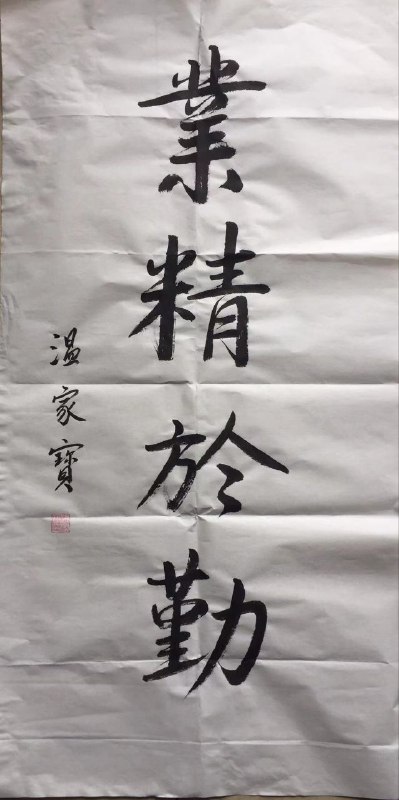 業精於勤
温家寶